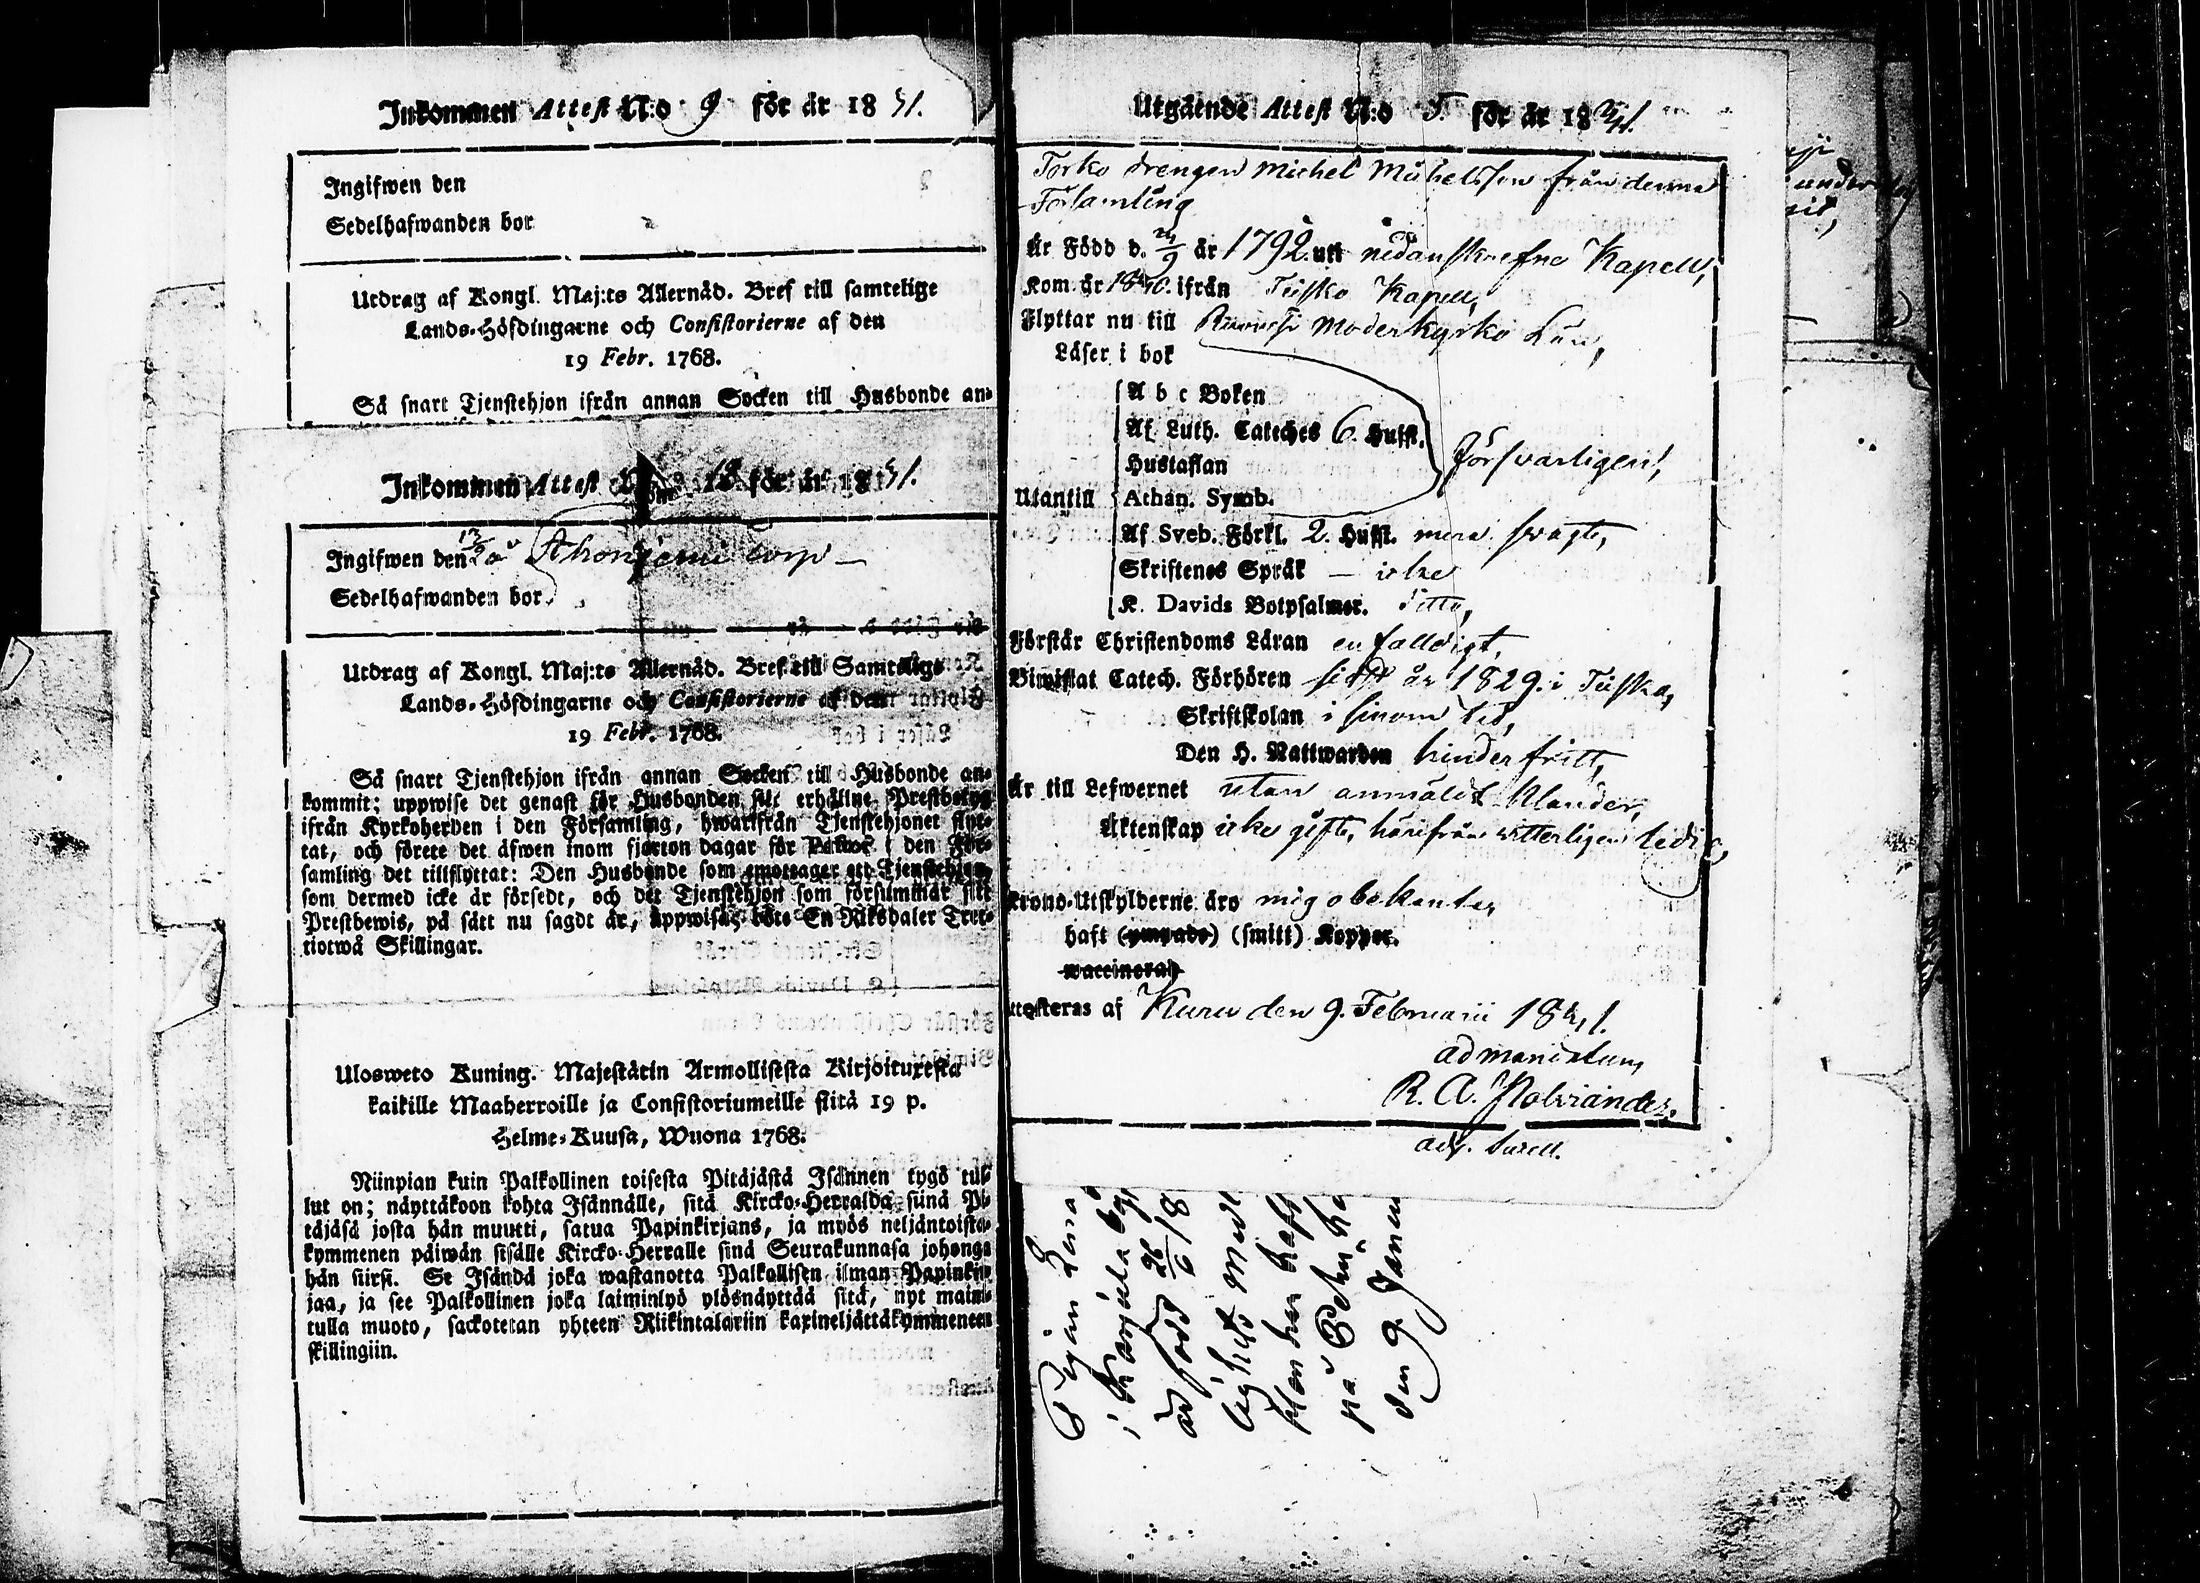 Inkommen Attest N:o 9 för år 1841.
Ingifwen den
Sedelhafwanden bor
Utdrag af Kongl. Maj:ts Allernåd. Bref till samtelige
Lands-Höfdingarne och Consistorierne af den
19 Febr. 1768.
Så snart Tjenstehjon ifrån annan Socken till Husbonde an-
Inkommen Attest 18 för år 1841.
Ingifwen den torp
Sedelhafwanden bor
Utdrag af Kongl. Maj:ts Allernåd. Bref till Samtelige
Lands-Höfdingarne och Consistorierne af den
19 Febr. 1768.
Så snart Tjenstehjon ifrån annan Socken till Husbonde an-
kommit; uppwise det genast för Husbonden sitt erhållne Prestbetyg
ifrån Kyrkoherden i den Församling, hwarifrån Tjenstehjonet flyt-
tat, och förete det äfwen inom fjorton dagar för i den För-
samling det tillflyttat: Den Husbonde som emottager ett Tjenstehjon,
som dermed icke är försedt, och det Tjenstehjon som försummar sitt
Prestbewis, på sätt nu sagdt är, uppwisa, böte En Riksdaler Tret-
tiotwå Skillingar.
Ulosweto Kuning. Majestätin Armollisesta Kirjoituxesta
kaikille Maaherroille ja Consistoriumeille siitä 19 p.
Helme-Kuusa, Wuona 1768.
Niinpian kuin Palkollinen toisesta Pitäjästä Isännen tygö tul-
lut on; näyttäkoon kohta Isännälle, sitä Kircko-Herralda siinä Pi-
täjäsä josta hän muutti, saatua Papinkirjans, ja myös neljäntoista-
kymmenen päiwän sisälle Kircko-Herralle siinä Seurakunnasa johonga
hän siirsi. Se Isändä joka wastanotta Palkollisen ilman Papinkir-
jaa, ja see Palkollinen joka laiminlyö ylösnäyttää sitä, nyt maini-
tulla muoto, sackotetan yhteen Riikintalariin kaxineljättäkymmeneen
skillingiin.
Utgående Attest N:o 5. för år 1841.
Torko drengen Michel Michelsson från denna
Församling
Är Född d. 24/9 år 1792. uti nedanskrefne Kapell,
Kom år 1840. ifrån Kapell,
Flyttar nu till Ruovesi Moderkyrko
Läser i bok
A b c Boken
Af Luth. Cateches 6. Hufst. försvarligen,
Hustaflan
Utantill Athan. Symb.
Af Sveb. Förkl. 2. Hufst. mera swagt,
Skriftenes Språk — icke
K. Davids Botpsalmer. ditto,
Förstår Christendoms Läran enfalldigt,
Biwistat Catech. Förhören sidst år 1829. i
Skriftskolan i sinom tid,
Den H. Nattwarden hinderfritt,
Är till Lefwernet utan anmäldt klander,
Äktenskap icke gift, härifrån witterligen ledig,
Krono-Utskylderne äro mig obekanta,
haft (ympade) (smitt) Koppor.
waccinerad
Attesteras af Kuru den 9. Februarii 1841.
ad mandatum,
R. A. Polviander.
adj. Sacell.
Pigan Lena
i
är född 26/6 18
på
den 9. Januari